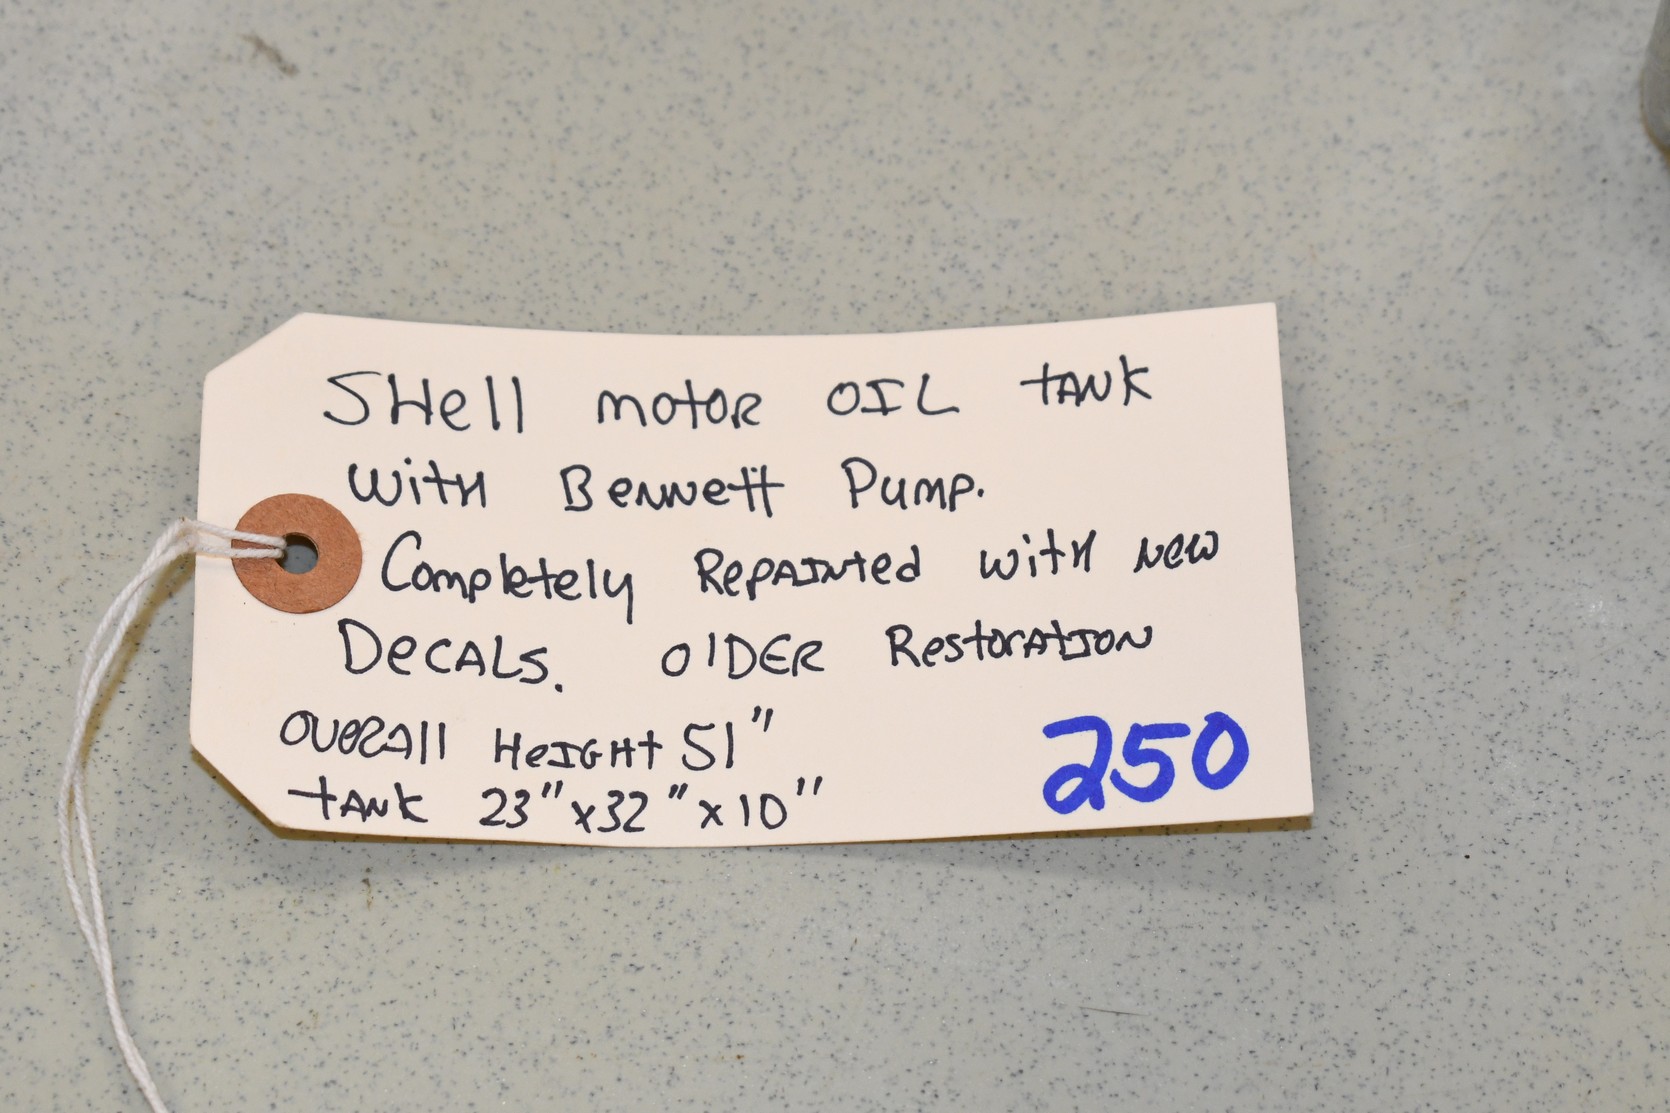 SHell motor OIL tANK
WitH BeNNett Pump.
Completely RepAINted witH New
DecALs. OlDER RestorAtION
OVERAll HeIGHt 51"
tANK 23" x 32" x 10"
250